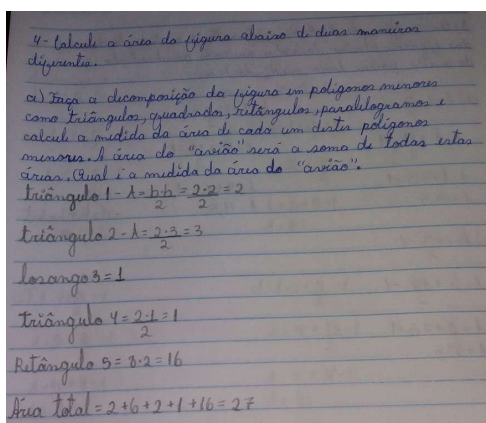 4- Calcule a área da figura abaixo de duas maneiras
diferentes.
a) Faça a decomposição da figura em polígonos menores
como triângulos, quadrados, retângulos, paralelogramos e
calcule a medida da área de cada um destes polígonos
menores. A área do "avião" será a soma de todas estas
áreas. Qual é a medida da área do "avião".
triângulo 1 - A = b·h/2 = 2·2/2 = 2
triângulo 2 - A = 2·3/2 = 3
losango 3 = 1
triângulo 4 = 2·1/2 = 1
Retângulo 5 = 8·2 = 16
Área total = 2+6+2+1+16 = 27